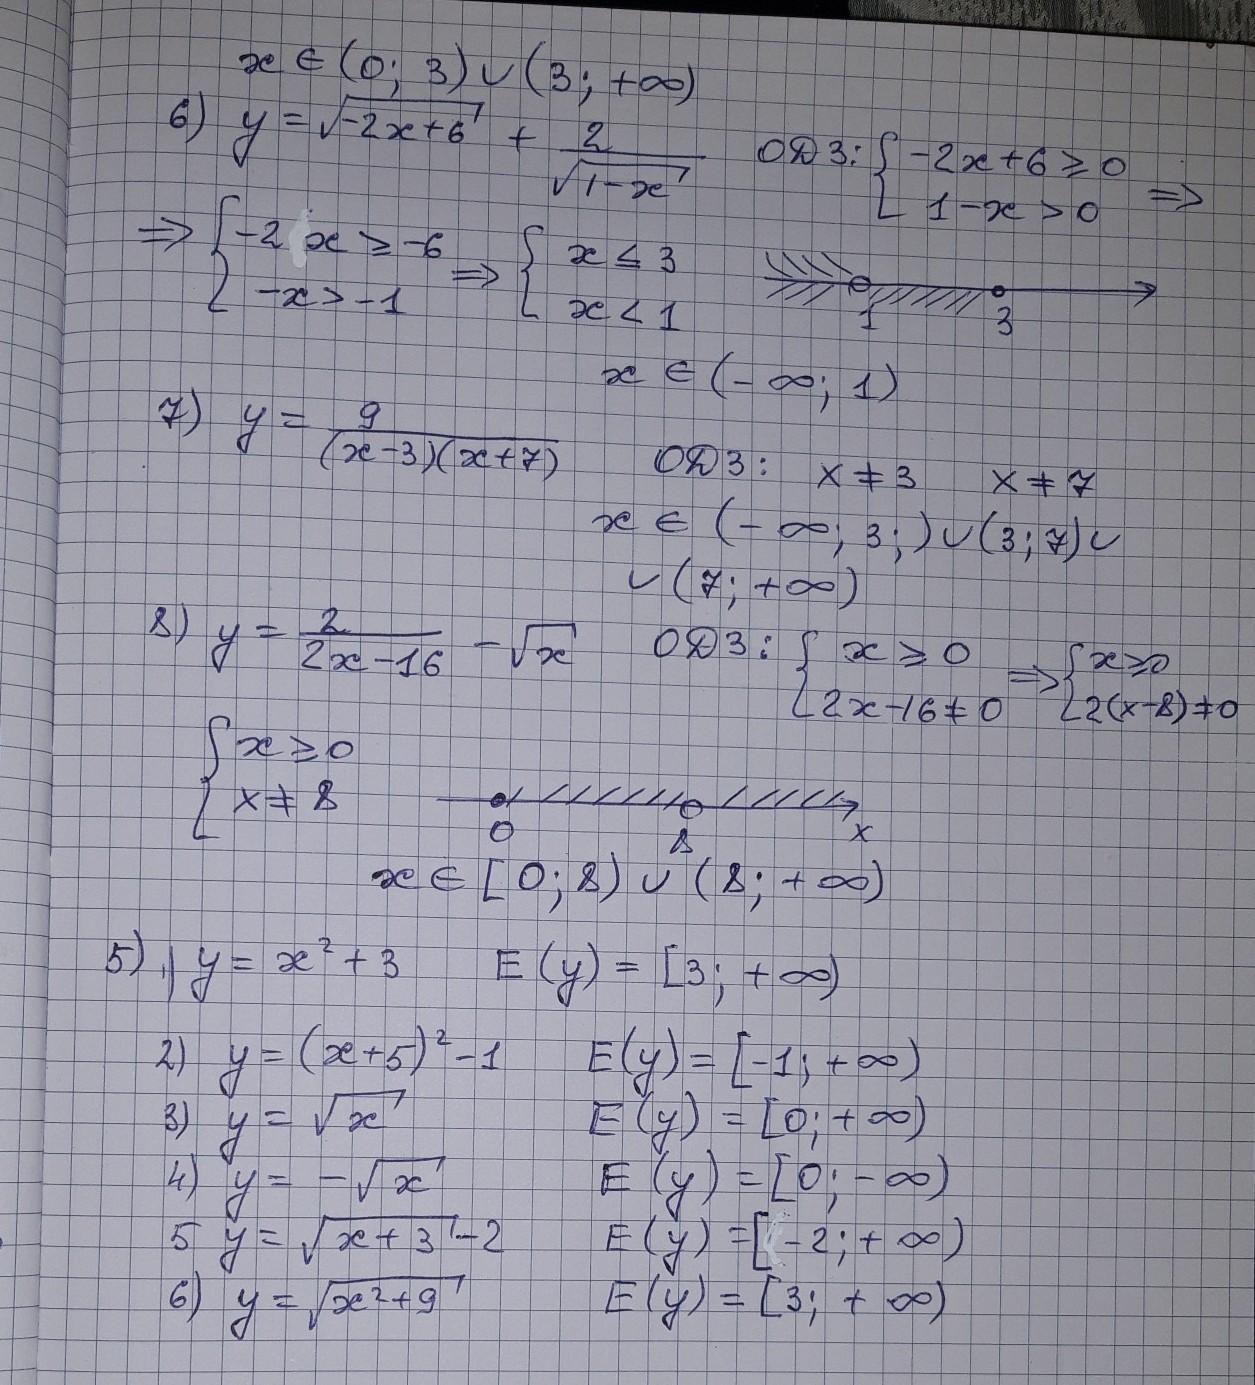 x ∈ (0; 3) ∪ (3; +∞)
6) y = √(-2x+6) + 2/√(1-x) ОДЗ: { -2x+6 ≥ 0 1-x > 0 ⇒
⇒ { -2x ≥ -6 -x > -1 ⇒ { x ≤ 3 x < 1
1 3
x ∈ (-∞; 1)
7) y = 9/((x-3)(x+7)) ОДЗ: x ≠ 3 x ≠ 7
x ∈ (-∞; 3;) ∪ (3; 7) ∪
∪ (7; +∞)
8) y = 2/(2x-16) - √x ОДЗ: { x ≥ 0 2x-16 ≠ 0 ⇒ { x ≥ 0 2(x-8) ≠ 0
{ x ≥ 0 x ≠ 8
0 8 x
x ∈ [0; 8) ∪ (8; +∞)
5) 1) y = x² + 3 E(y) = [3; +∞)
2) y = (x+5)² - 1 E(y) = [-1; +∞)
3) y = √x E(y) = [0; +∞)
4) y = -√x E(y) = [0; -∞)
5 y = √(x+3) - 2 E(y) = [-2; +∞)
6) y = √(x²+9) E(y) = [3; +∞)